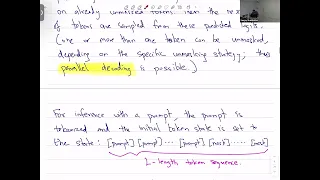 on already unmasked rooms. Then the next
of tokens are sampled from these predicted logits.
(one or more than one token can be unmasked,
depending on the specific unmasking strategy; thus
parallel decoding is possible.)
For inference with a prompt, the prompt is
tokenized and the initial token state is set to
the state: [prompt] [prompt] ... [prompt] [mask] ... [mask]
L-length token sequence.